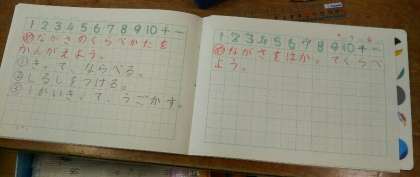 1 2 3 4 5 6 7 8 9 10 + −
め ながさのくらべかたを
かんがえよう。
① き って、ならべる。
② しるしをつける。
③ 1かいきって、うごかす。
1 2 3 4 5 6 7 8 9 10 + −
め ながさをはかってくらべ
よう。